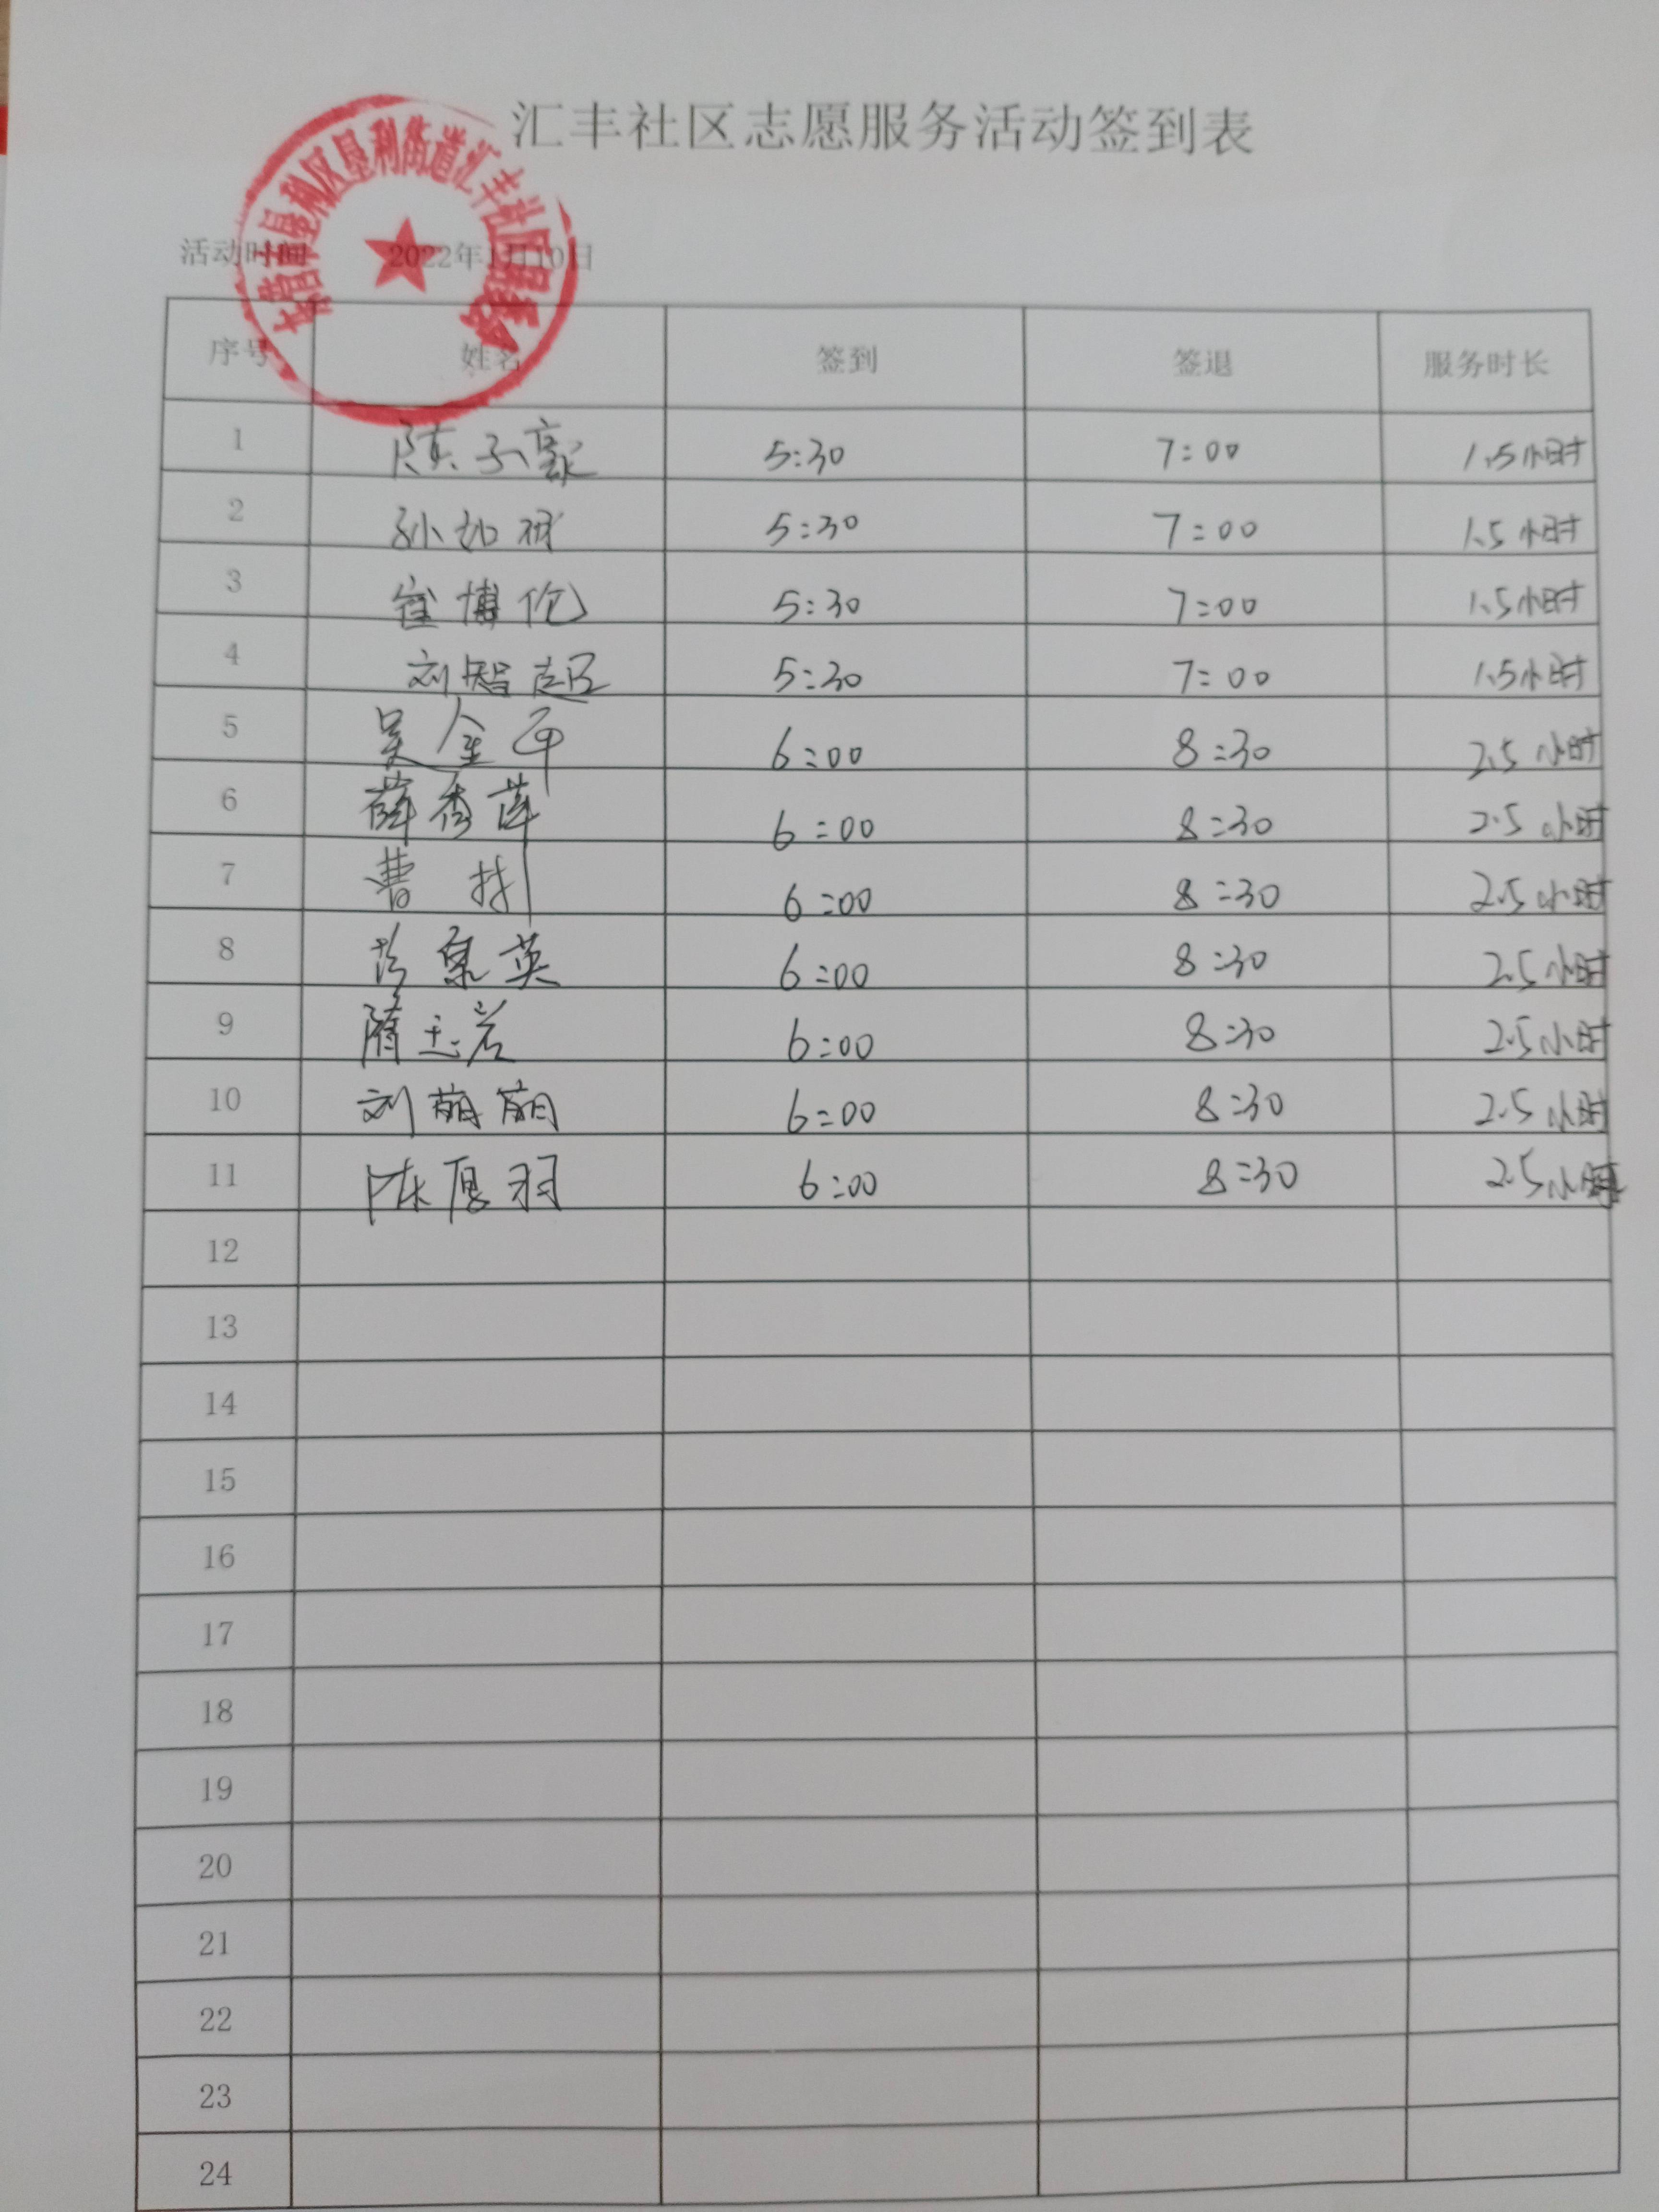 汇丰社区志愿服务活动签到表
东营市垦利区垦利街道汇丰社区居委会
活动时间 2022年1月10日
序号 姓名 签到 签退 服务时长
1 陈子豪 5:30 7:00 1.5小时
2 孙如 5:30 7:00 1.5小时
3 崔博伦 5:30 7:00 1.5小时
4 刘智超 5:30 7:00 1.5小时
5 吴金平 6:00 8:30 2.5小时
6 薛秀萍 6:00 8:30 2.5小时
7 曹 6:00 8:30 2.5小时
8 英 6:00 8:30 2.5小时
9 隋玉岩 6:00 8:30 2.5小时
10 刘萌萌 6:00 8:30 2.5小时
11 陈厚羽 6:00 8:30 2.5小时
12
13
14
15
16
17
18
19
20
21
22
23
24